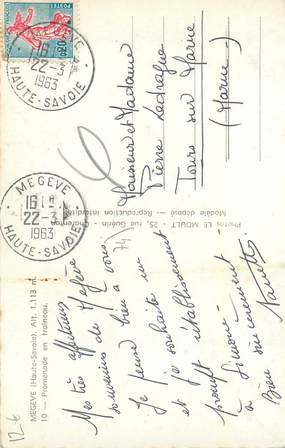 POSTES
0,20
MEGEVE
16 H
22-3
1963
HAUTE-SAVOIE
MEGEVE
16 H
22-3
1963
HAUTE-SAVOIE
Monsieur et Madame
Pierre Ladrague
Tours sur Marne
(Marne)
Photos LE MOULT - 25, rue Guérin - Charenton
Modèle déposé - Reproduction interdite
74
MEGEVE (Haute-Savoie). Alt. 1.113 m.
10 — Promenade en traîneau.
Mes très affectueux
souvenirs de Megève
Je pense bien à vous
et je souhaite un
prompt rétablissement
à Simone
Bien sincèrement
12-6